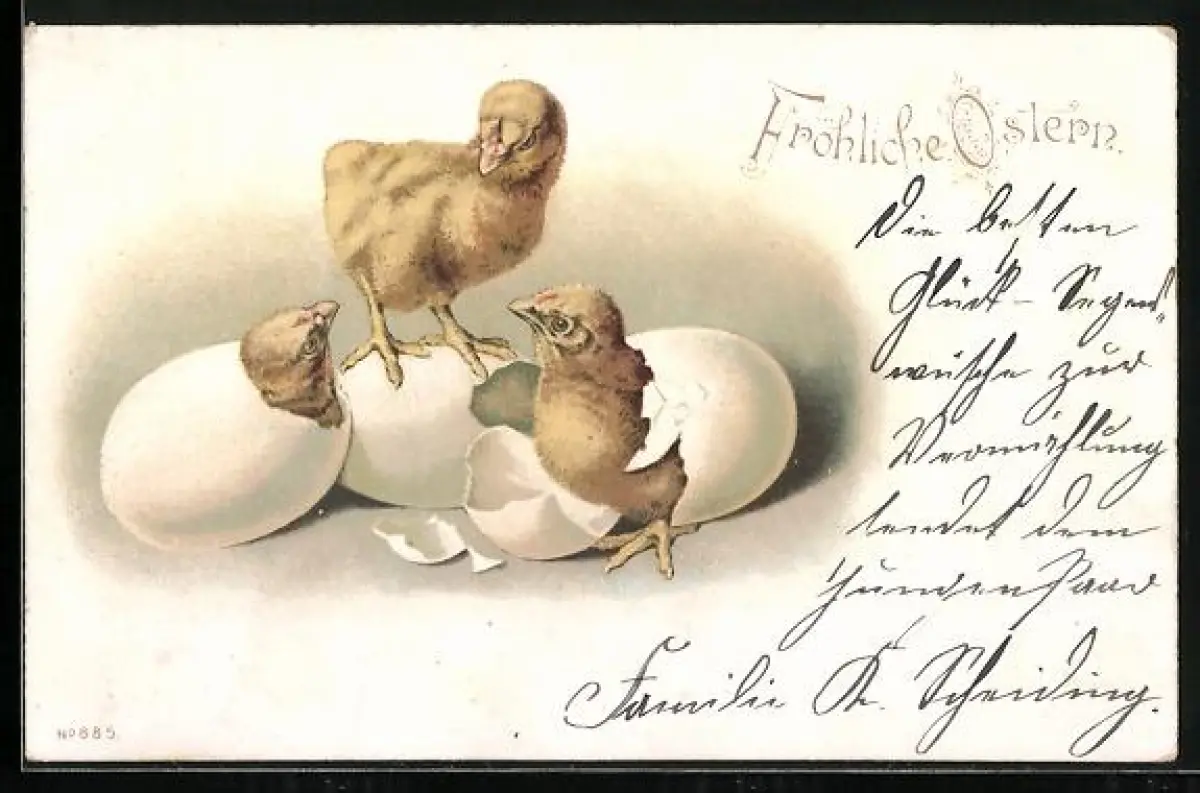 Fröhliche Ostern.
Die besten
Glück- Segens-
wüsche zur
Vermählung
sendet dem
jungen Paar
Familie K. Scheiding.
No 885